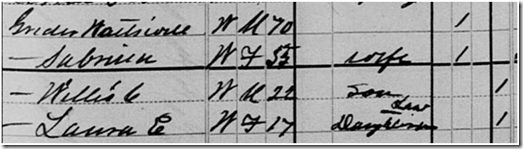 Grider W M 70 1
— Sabrina W F 55 wife 1
— Willis C W M 22 Son 1
— Laura E W F 17 Daughter Law 1